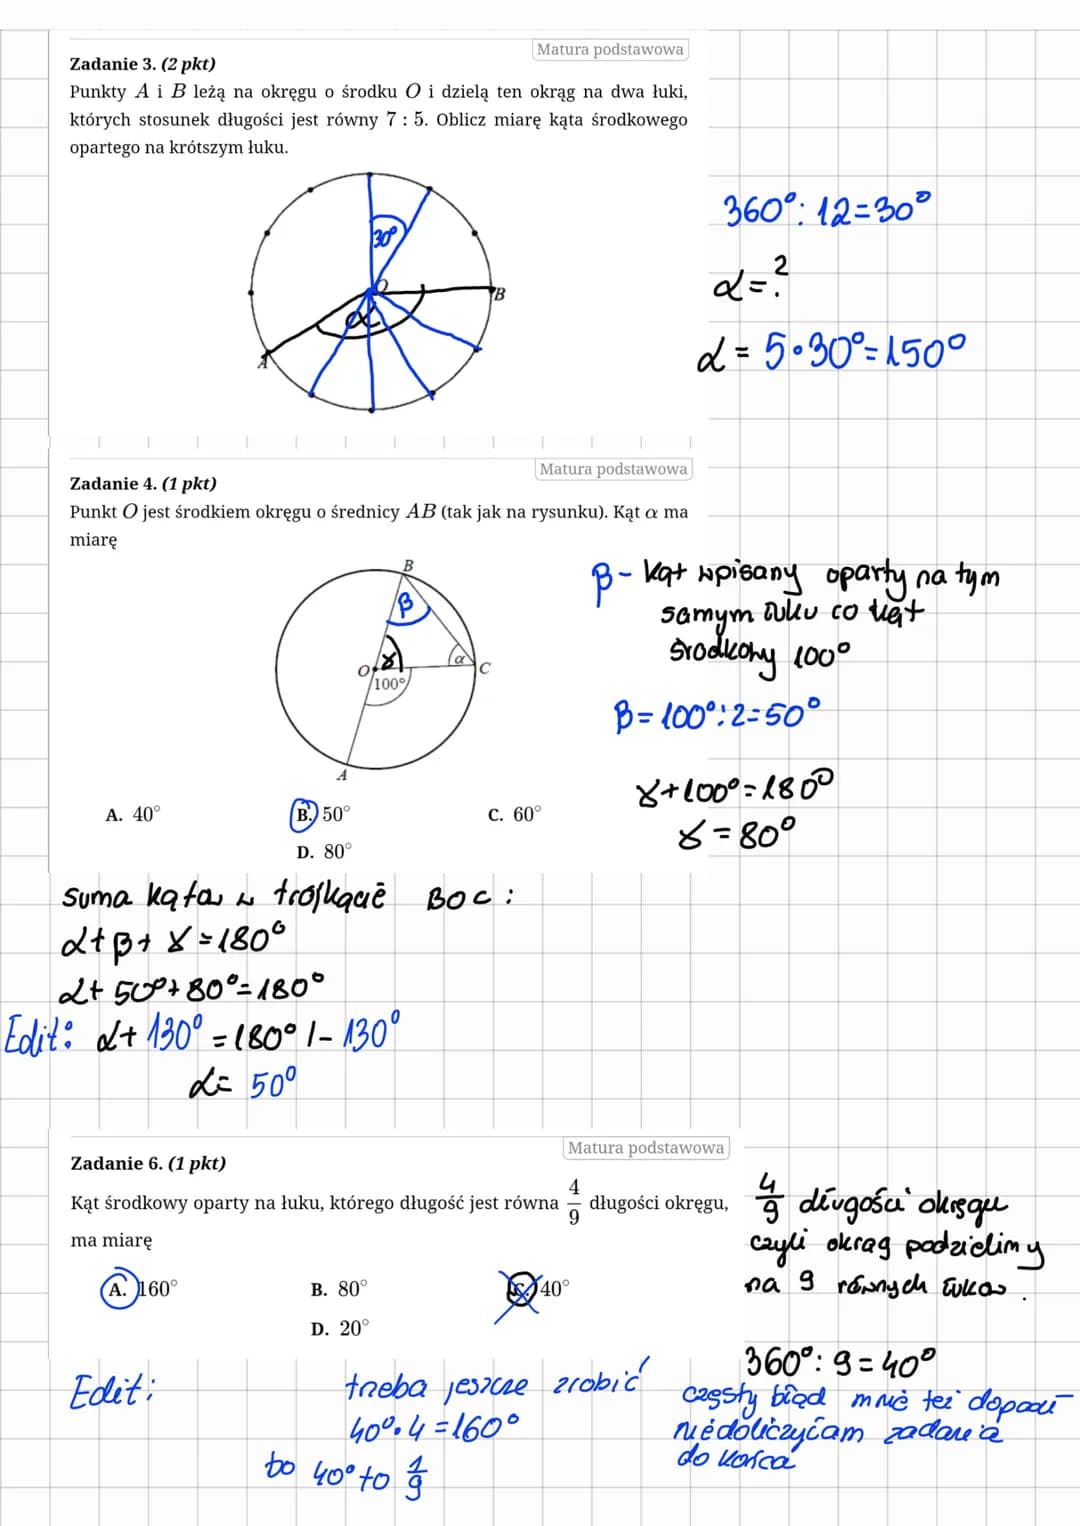 Matura podstawowa
Zadanie 3. (2 pkt)
Punkty A i B leżą na okręgu o środku O i dzielą ten okrąg na dwa łuki,
których stosunek długości jest równy 7 : 5. Oblicz miarę kąta środkowego
opartego na krótszym łuku.
30°
O
B
α
A
360°: 12=30°
α=?
α = 5·30°=150°
Matura podstawowa
Zadanie 4. (1 pkt)
Punkt O jest środkiem okręgu o średnicy AB (tak jak na rysunku). Kąt α ma
miarę
B
β
γ
α
O
C
100°
A
A. 40°
B. 50°
C. 60°
D. 80°
β- kąt wpisany oparty na tym
samym łuku co kąt
środkowy 100°
β=100°:2=50°
γ+100°=180°
γ=80°
Suma kątów w trójkącie BOC:
α+β+γ=180°
α+50°+80°=180°
Edit: α+130°=180° /-130°
α= 50°
Matura podstawowa
Zadanie 6. (1 pkt)
Kąt środkowy oparty na łuku, którego długość jest równa 4/9 długości okręgu,
ma miarę
A. 160°
B. 80°
C. 40°
D. 20°
4/9 długości okręgu
czyli okrąg podzielimy
na 9 równych łuków.
360°:9=40°
Edit:
trzeba jeszcze zrobić
40°·4=160°
bo 40° to 1/9
częsty błąd mnie też dopadł
niedoliczyłam zadania
do końca